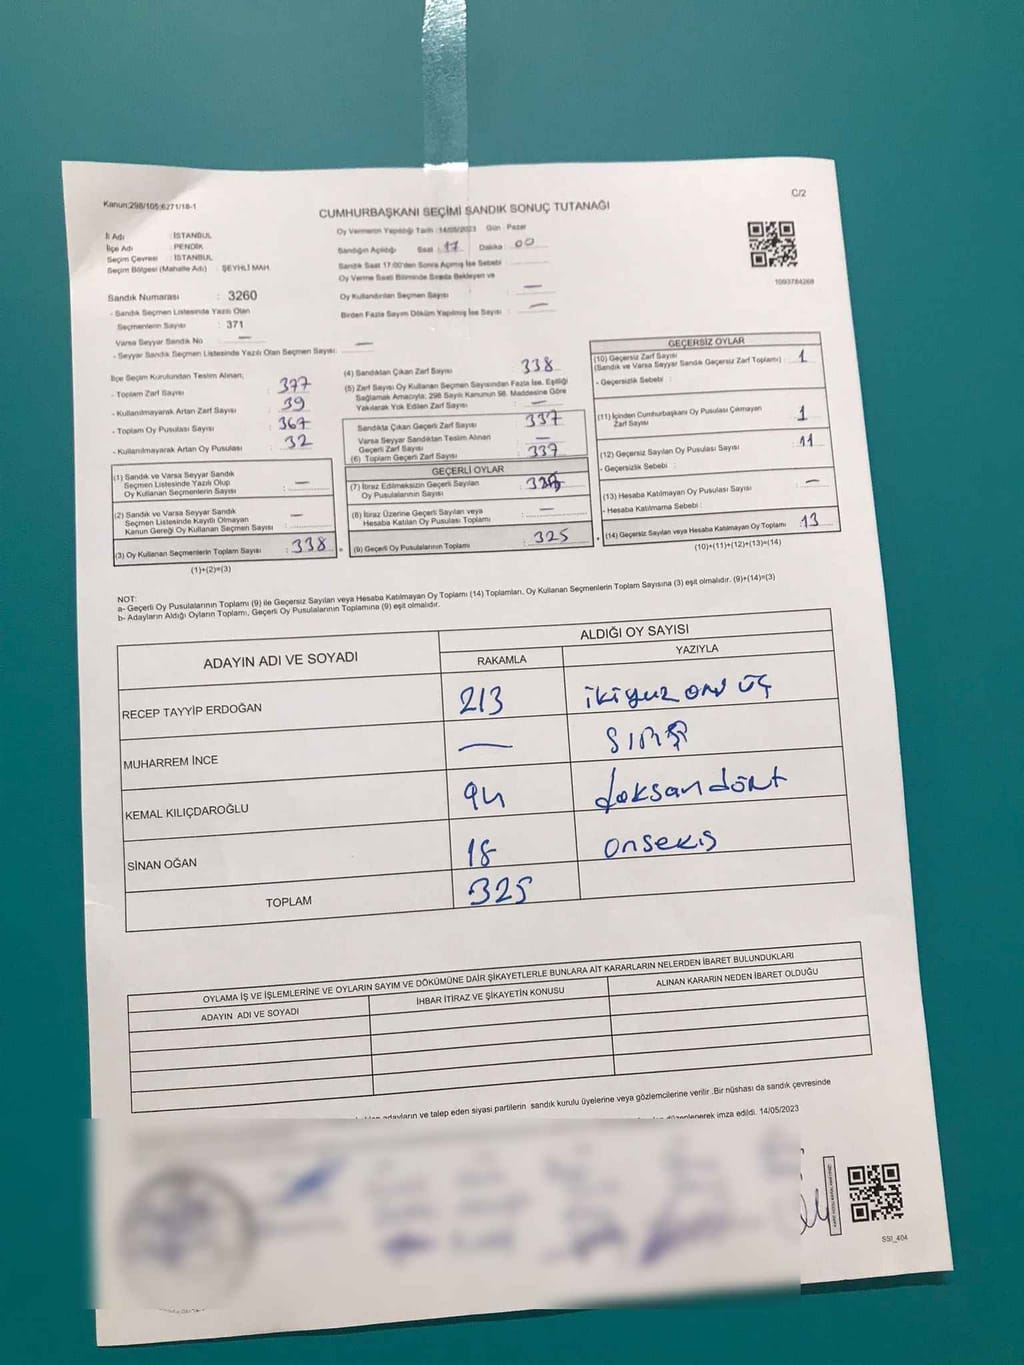 Kanun:298/105;6271/18-1
C/2
CUMHURBAŞKANI SEÇİMİ SANDIK SONUÇ TUTANAĞI
İl Adı : İSTANBUL
İlçe Adı : PENDİK
Seçim Çevresi : İSTANBUL
Seçim Bölgesi (Mahalle Adı) : ŞEYHLİ MAH
Sandık Numarası : 3260
- Sandık Seçmen Listesinde Yazılı Olan
Seçmenlerin Sayısı : 371
Varsa Seyyar Sandık No : —
- Seyyar Sandık Seçmen Listesinde Yazılı Olan Seçmen Sayısı: —
Oy Vermenin Yapıldığı Tarih :14/05/2023 Gün : Pazar
Sandığın Açıldığı Saat : 17 Dakika : 00
Sandık Saat 17:00'den Sonra Açılmış İse Sebebi :
Oy Verme Saati Bitiminde Sırada Bekleyen ve
Oy Kullandırılan Seçmen Sayısı : —
Birden Fazla Sayım Döküm Yapılmış İse Sayısı : —
1093784268
İlçe Seçim Kurulundan Teslim Alınan;
- Toplam Zarf Sayısı : 377
- Kullanılmayarak Artan Zarf Sayısı : 39
- Toplam Oy Pusulası Sayısı : 367
- Kullanılmayarak Artan Oy Pusulası : 32
(1) Sandık ve Varsa Seyyar Sandık
Seçmen Listesinde Yazılı Olup
Oy Kullanan Seçmenlerin Sayısı : —
(2) Sandık ve Varsa Seyyar Sandık
Seçmen Listesinde Kayıtlı Olmayan
Kanun Gereği Oy Kullanan Seçmen Sayısı : —
(3) Oy Kullanan Seçmenlerin Toplam Sayısı : 338
(1)+(2)=(3)
(4) Sandıktan Çıkan Zarf Sayısı : 338
(5) Zarf Sayısı Oy Kullanan Seçmen Sayısından Fazla İse, Eşitliği
Sağlamak Amacıyla; 298 Sayılı Kanunun 98. Maddesine Göre
Yakılarak Yok Edilen Zarf Sayısı : —
Sandıkta Çıkan Geçerli Zarf Sayısı : 337
Varsa Seyyar Sandıktan Teslim Alınan
Geçerli Zarf Sayısı : —
(6) Toplam Geçerli Zarf Sayısı : 337
GEÇERLİ OYLAR
(7) İtiraz Edilmeksizin Geçerli Sayılan
Oy Pusulalarının Sayısı :
(8) İtiraz Üzerine Geçerli Sayılan veya
Hesaba Katılan Oy Pusulası Toplamı : —
(9) Geçerli Oy Pusulalarının Toplamı : 325
GEÇERSİZ OYLAR
(10) Geçersiz Zarf Sayısı
(Sandık ve Varsa Seyyar Sandık Geçersiz Zarf Toplamı) : 1
- Geçersizlik Sebebi :
(11) İçinden Cumhurbaşkanı Oy Pusulası Çıkmayan
Zarf Sayısı : 1
(12) Geçersiz Sayılan Oy Pusulası Sayısı : 11
- Geçersizlik Sebebi :
(13) Hesaba Katılmayan Oy Pusulası Sayısı : —
- Hesaba Katılmama Sebebi :
(14) Geçersiz Sayılan veya Hesaba Katılmayan Oy Toplamı : 13
(10)+(11)+(12)+(13)=(14)
NOT:
a- Geçerli Oy Pusulalarının Toplamı (9) ile Geçersiz Sayılan veya Hesaba Katılmayan Oy Toplamı (14) Toplamları, Oy Kullanan Seçmenlerin Toplam Sayısına (3) eşit olmalıdır. (9)+(14)=(3)
b- Adayların Aldığı Oyların Toplamı, Geçerli Oy Pusulalarının Toplamına (9) eşit olmalıdır.
ADAYIN ADI VE SOYADI
ALDIĞI OY SAYISI
RAKAMLA YAZIYLA
RECEP TAYYİP ERDOĞAN 213 ikiyüz on üç
MUHARREM İNCE — sıfır
KEMAL KILIÇDAROĞLU 94 doksandört
SİNAN OĞAN 18 onsekis
TOPLAM 325
OYLAMA İŞ VE İŞLEMLERİNE VE OYLARIN SAYIM VE DÖKÜMÜNE DAİR ŞİKAYETLERLE BUNLARA AİT KARARLARIN NELERDEN İBARET BULUNDUKLARI
ADAYIN ADI VE SOYADI İHBAR İTİRAZ VE ŞİKAYETİN KONUSU ALINAN KARARIN NEDEN İBARET OLDUĞU
adayların ve talep eden siyasi partilerin sandık kurulu üyelerine veya gözlemcilerine verilir .Bir nüshası da sandık çevresinde
düzenlenerek imza edildi. 14/05/2023
SSI_404